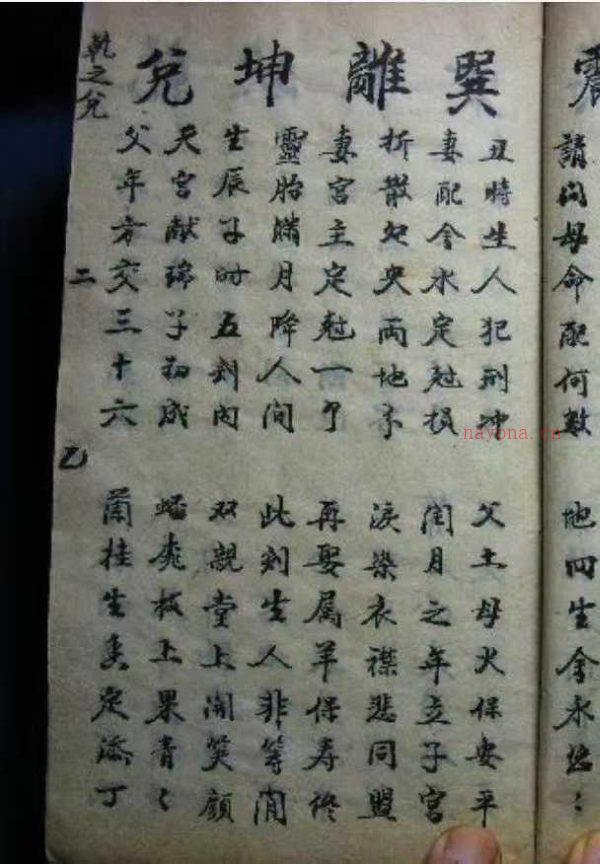 震
請问母命配何数
地四生金永
巽離坤兌
丑時生人犯刑冲
父土母火保安平
妻配金水定尅損
閏月之年立子宮
折散夗央兩地
淚染衣襟悲同盟
妻宮主定尅一个
再娶属羊保寿
靈胎滿月降人间
此刻生人非等闲
生辰子时五刻内
双親堂上開笑顔
天宮献瑞子初成
蟠桃枝上果青々
父年方交三十六
蘭桂生香定添丁
乾之兌
二
乙
nayona.cn